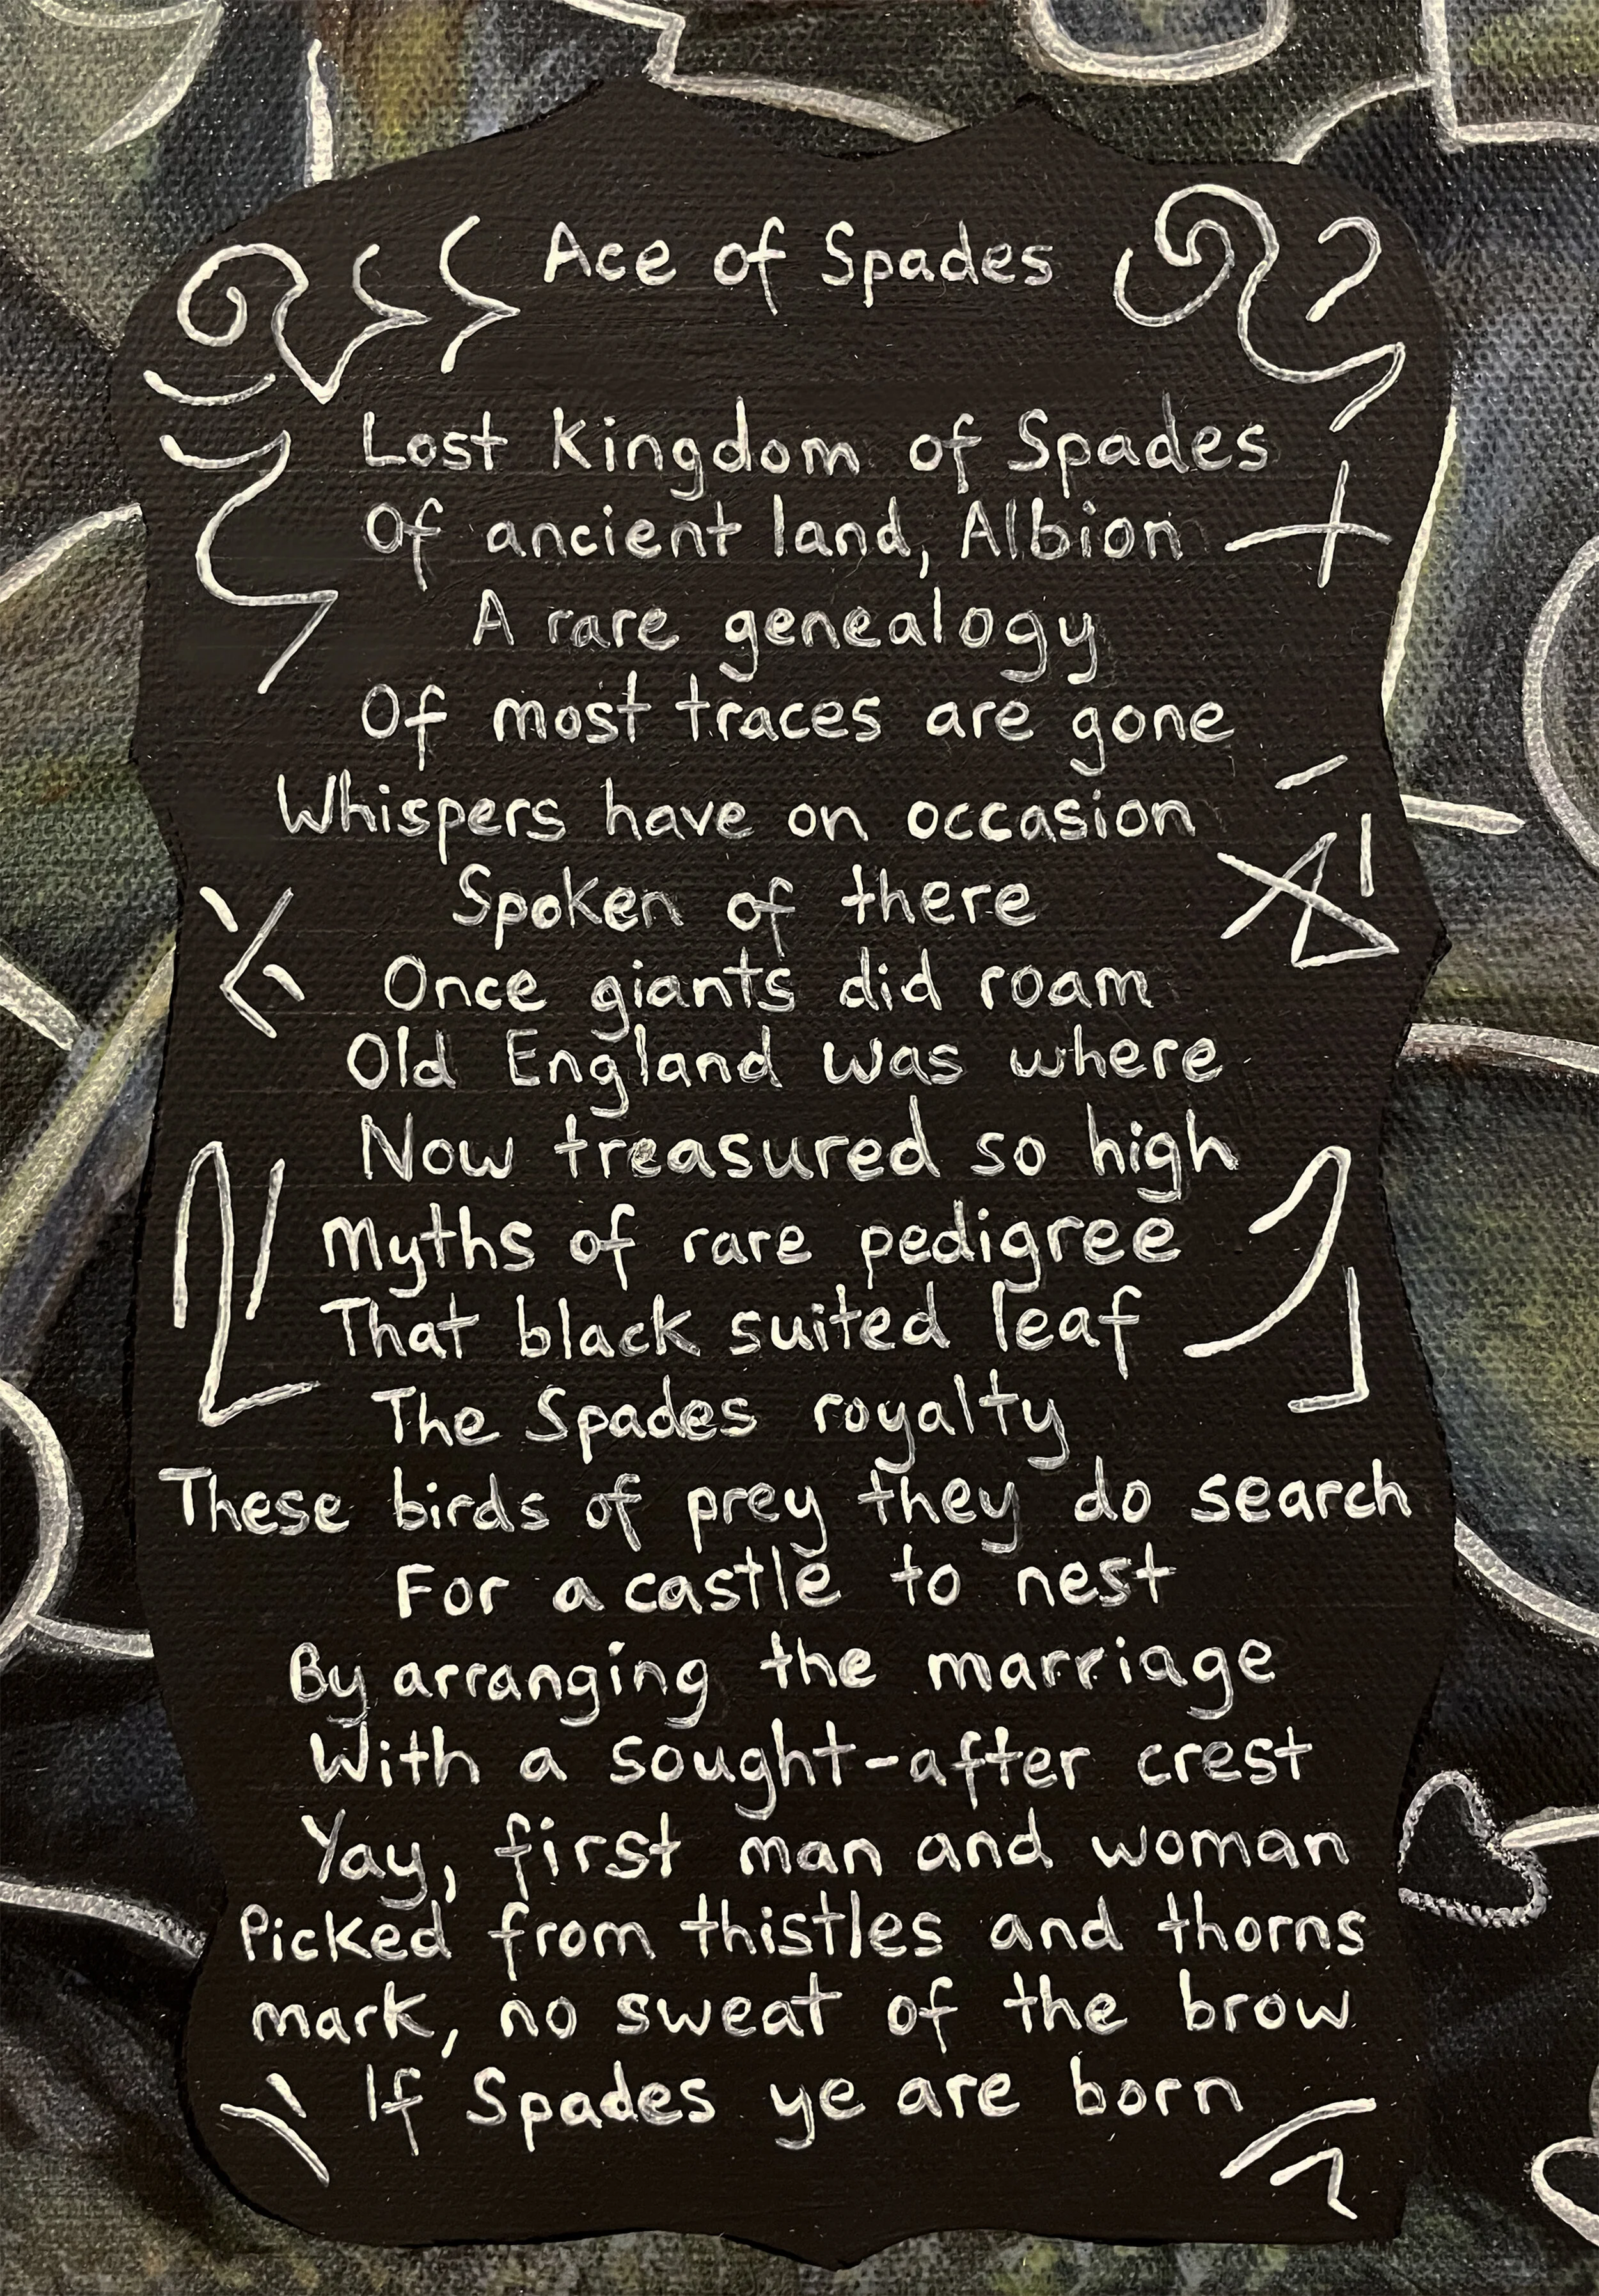 Ace of Spades
Lost Kingdom of Spades
Of ancient land, Albion
A rare genealogy
Of most traces are gone
Whispers have on occasion
Spoken of there
Once giants did roam
Old England was where
Now treasured so high
Myths of rare pedigree
That black suited leaf
The Spades royalty
These birds of prey they do search
For a castle to nest
By arranging the marriage
With a sought-after crest
Yay, first man and woman
Picked from thistles and thorns
mark, no sweat of the brow
If Spades ye are born